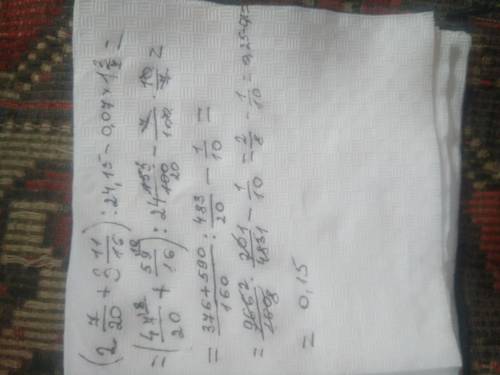 (2 7/20 + 3 11/16) : 24,15 - 0,07 × 1 3/7 =
= (47/20 + 59/16) : 24 15/100 - 7/100 · 10/7 =
= 376+590/160 : 483/20 - 1/10 =
= 966/160 · 20/483 - 1/10 = 2/8 - 1/10 = 0,25 - 0,1 =
= 0,15